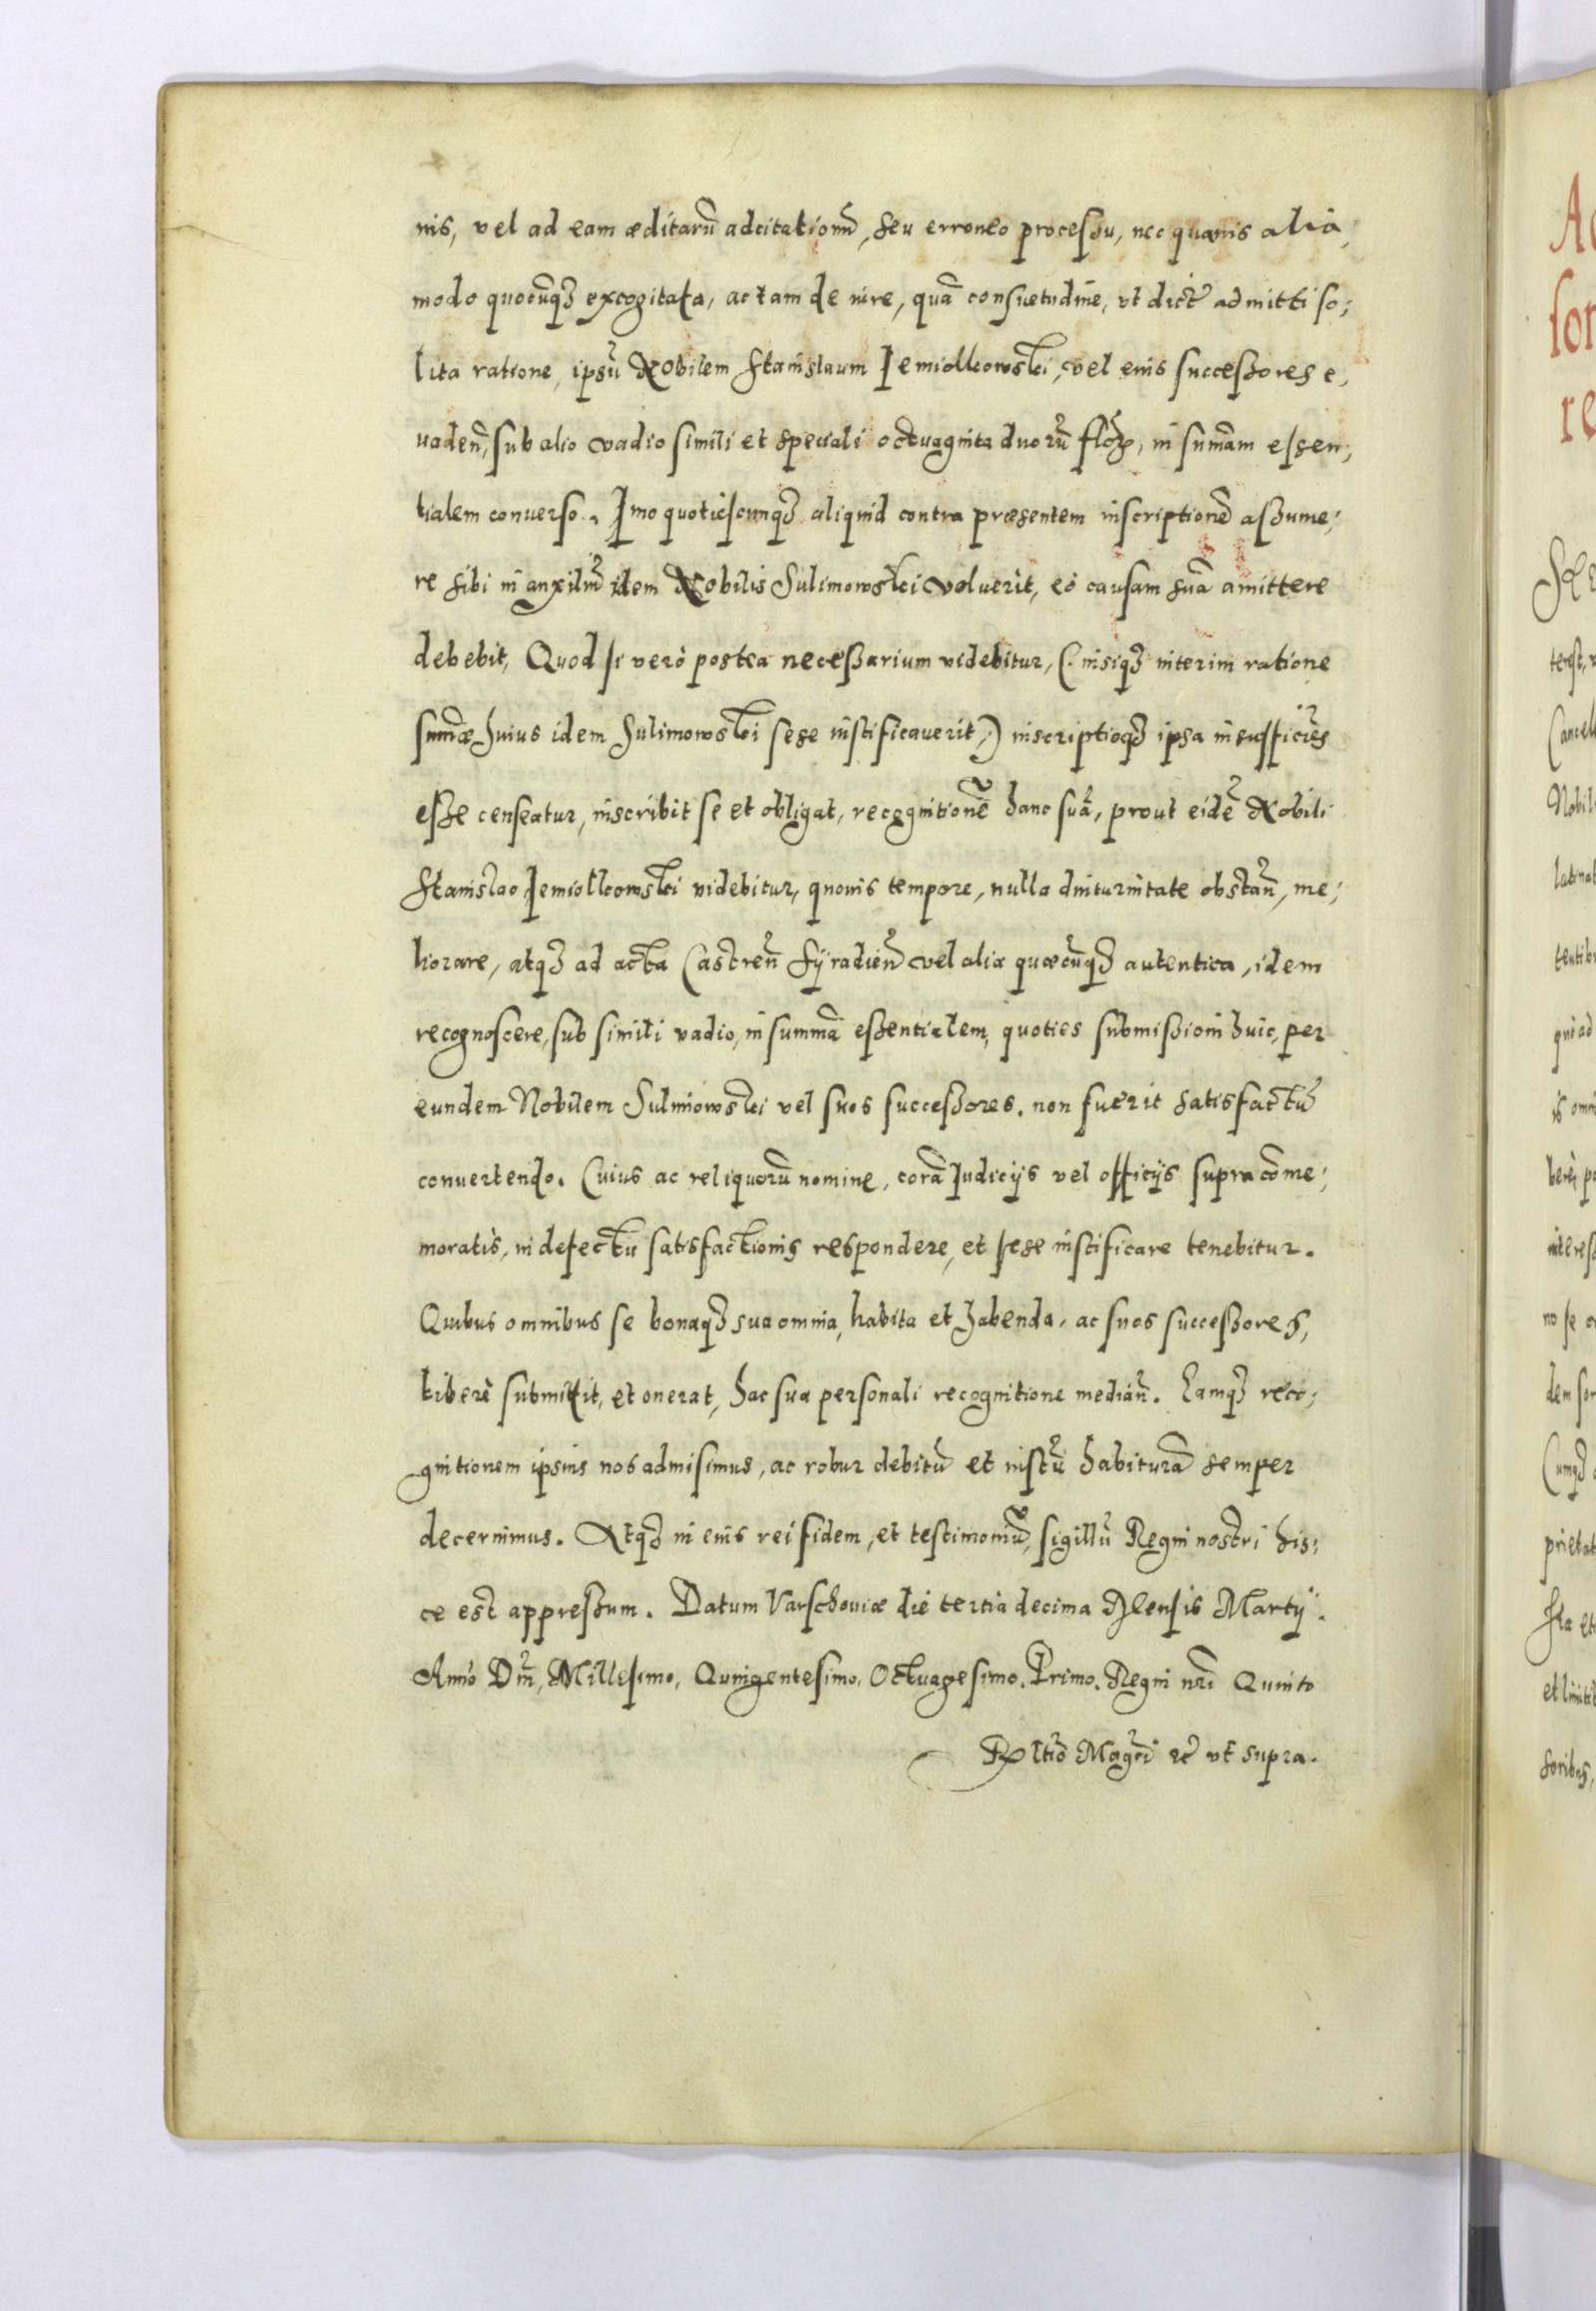 nis, vel ad eam æditarū adcitationū, seu erroneo processu, nec quavis alia,
modo quocūqȝ excogitata, ac tam de iure, quā consuetudine, vt dict̃ admitti so,
lita ratione, ipsū Nobilem Stanislaum Jemiolkowski, vel eius successores e,
uadeñ, sub alio vadio simili et speciali octuaginta duorū floȝ, in sum̄am essen,
tialem conuerso. Imo quotiescunqȝ aliquid contra præsentem inscriptionē assume,
re sibi in auxiliū idem Nobilis Sulimowski voluerit, eo causam suā amittere
debebit, Quod si vero postea necessarium videbitur, (. nisiqȝ interim ratione
sum̄æ huius idem Sulimowski sese iustificauerit,) inscriptioqȝ ipsa insufficiēs
esse censeatur, inscribit se et obligat, recognitionē hanc suā, prout eidē Nobili
Stanislao Jemiolkowski videbitur, quouis tempore, nulla diuturnitate obstañ, me,
liorare, atqȝ ad acta Castreñ Syradieñ vel alia quæcūqȝ autentica, idem
recognoscere, sub simili vadio, in summā essentialem, quoties submissioni huic, per
eundem Nobilem Sulimowski vel suos successores, non fuerit satisfactū
conuertendo. Cuius ac reliquorū nomine, corā Judicijs vel officijs supra com̄e,
moratis, in defectu satisfactionis respondere, et sese iustificare tenebitur.
Quibus omnibus se bonaqȝ sua omnia, habita et habenda, ac suos successores,
liberè submittit, et onerat, hac sua personali recognitione mediañ. Eamqȝ reco,
gnitionem ipsius nos admisimus, ac robur debitū et iustū habiturā semper
decernimus. Atqȝ in eius rei fidem, et testimoniū, sigillū Regni nostri his,
ce est appressum. Datum Varschouiæ die tertia decima Mensis Martij.
Anno Dñi, Millesimo, Quingentesimo, Octuagesimo, Primo. Regni nr̃i Quinto
Rltiõ Magci ec̃ vt supra.